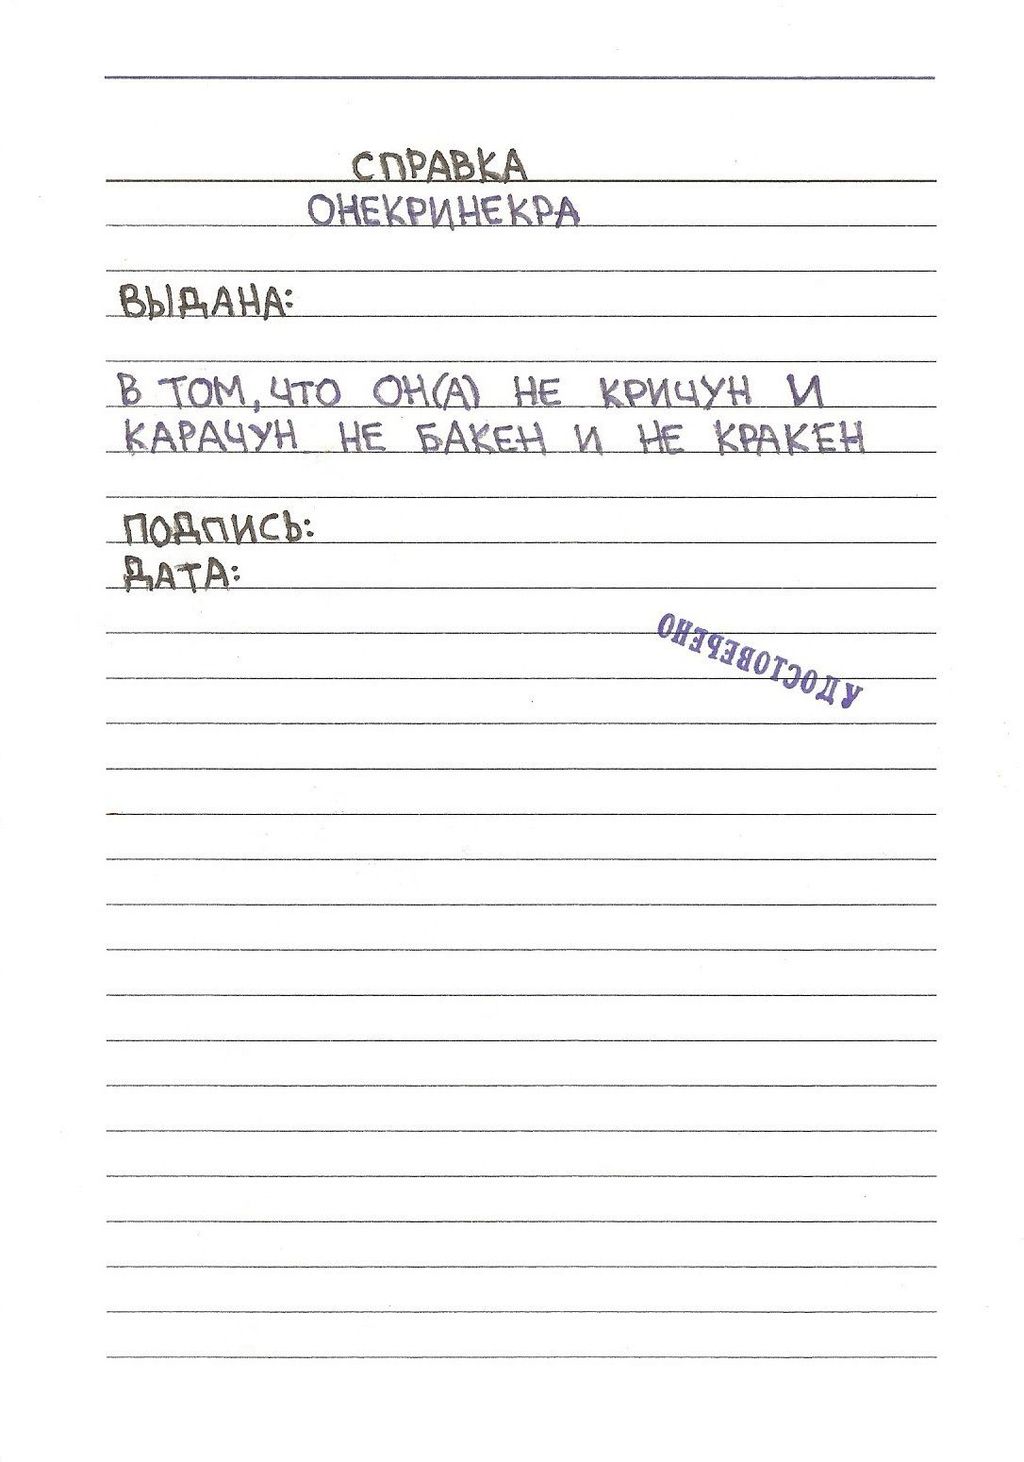 СПРАВКА
ОНЕКРИНЕКРА
ВЫДАНА:
В ТОМ, ЧТО ОН(А) НЕ КРИЧУН И
КАРАЧУН НЕ БАКЕН И НЕ КРАКЕН
ПОДПИСЬ:
ДАТА:
УДОСТОВЕРЕНО